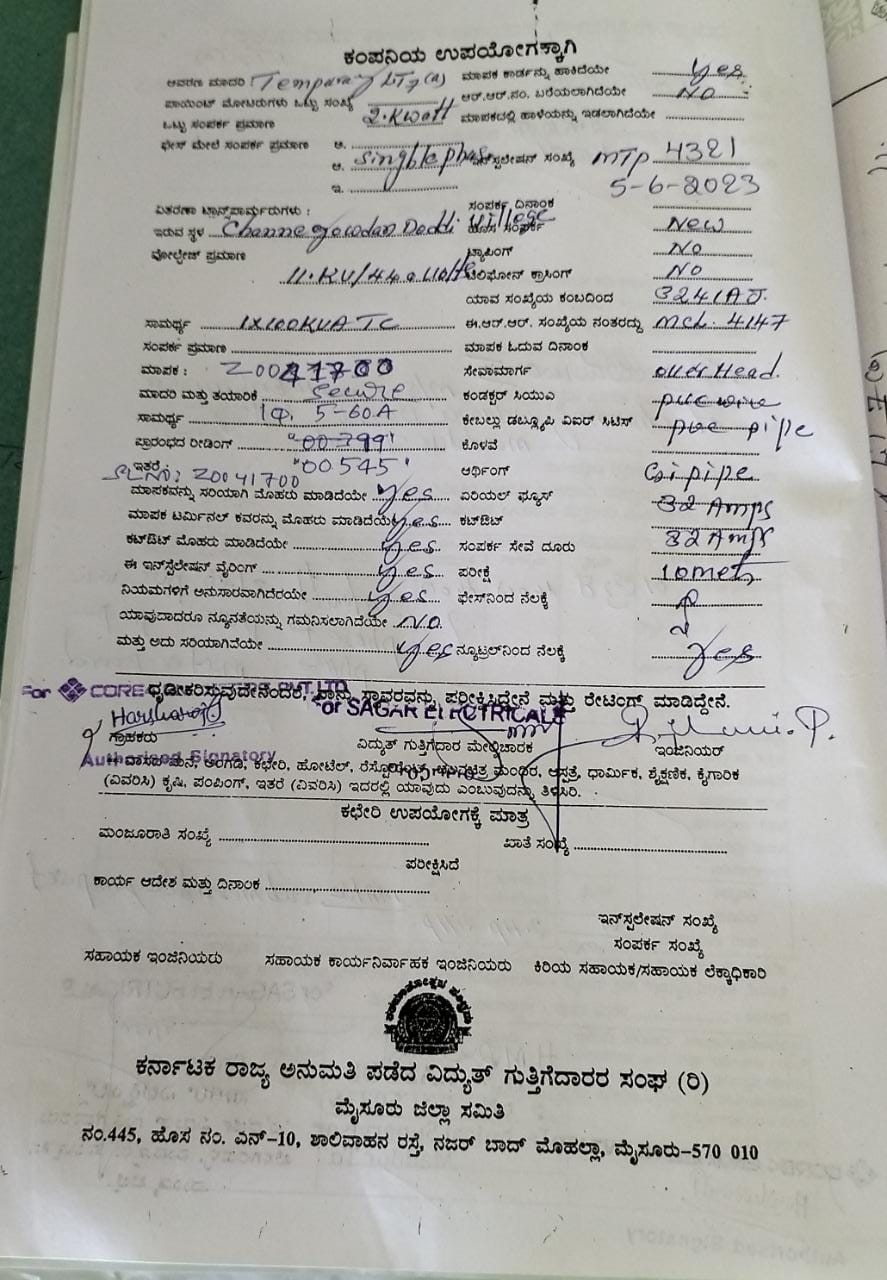 ಕಂಪನಿಯ ಉಪಯೋಗಕ್ಕಾಗಿ
ಆವರಣ ಮಾದರಿ Temparay LT7(a) ಮಾಪಕ ಕಾರ್ಡನ್ನು ಹಾಕಿದೆಯೇ Yes
ಪಾಯಿಂಟ್ ಮೋಟರುಗಳು ಒಟ್ಟು ಸಂಖ್ಯೆ ಆರ್.ಆರ್.ನಂ. ಬರೆಯಲಾಗಿದೆಯೇ No
ಒಟ್ಟು ಸಂಪರ್ಕ ಪ್ರಮಾಣ 2.Kwatt ಮಾಪಕದಲ್ಲಿ ಹಾಳೆಯನ್ನು ಇಡಲಾಗಿದೆಯೇ
ಫೇಸ್ ಮೇಲೆ ಸಂಪರ್ಕ ಪ್ರಮಾಣ ಅ.
ಆ. ಸಂಖ್ಯೆ MTP 4321
ಇ. 5-6-2023
ವಿತರಣಾ ಟ್ರಾನ್ಸ್‌ಫಾರ್ಮರುಗಳು : ಸಂಪರ್ಕ ದಿನಾಂಕ
ಇರುವ ಸ್ಥಳ Channegowdan Doddi Village ಸಂಪರ್ಕ New
ವೋಲ್ಟೇಜ್ ಪ್ರಮಾಣ ಟ್ಯಾಪಿಂಗ್ No
11.KV/440 Volts ಟೆಲಿಫೋನ್ ಕ್ರಾಸಿಂಗ್ No
ಯಾವ ಸಂಖ್ಯೆಯ ಕಂಬದಿಂದ
ಸಾಮರ್ಥ್ಯ 1X100KVA TC ಈ.ಆರ್.ಆರ್. ಸಂಖ್ಯೆಯ ನಂತರದ್ದು MCL. 4147
ಸಂಪರ್ಕ ಪ್ರಮಾಣ ಮಾಪಕ ಓದುವ ದಿನಾಂಕ
ಮಾಪಕ : Z0041700 ಸೇವಾಮಾರ್ಗ over Head.
ಮಾದರಿ ಮತ್ತು ತಯಾರಿಕೆ Secure ಕಂಡಕ್ಟರ್ ಸಿಯುಎ pvc wire
ಸಾಮರ್ಥ್ಯ 1φ, 5-60A ಕೇಬಲ್ಲು ಡಬ್ಲ್ಯೂಪಿ ವಿಐರ್ ಸಿಟಿಸ್ pvc pipe
ಪ್ರಾರಂಭದ ರೀಡಿಂಗ್ "00799" ಕೊಳವೆ
ಇತರೆ "00545" ಆರ್ಥಿಂಗ್ Gi pipe
SL NO: Z0041700
ಮಾಪಕವನ್ನು ಸರಿಯಾಗಿ ಮೊಹರು ಮಾಡಿದೆಯೇ Yes ಏರಿಯಲ್ ಫ್ಯೂಸ್ 32 Amps
ಮಾಪಕ ಟರ್ಮಿನಲ್ ಕವರನ್ನು ಮೊಹರು ಮಾಡಿದೆಯೆ Yes ಕಟ್‌ಔಟ್ 32 Amps
ಕಟ್‌ಔಟ್ ಮೊಹರು ಮಾಡಿದೆಯೇ Yes ಸಂಪರ್ಕ ಸೇವೆ ದೂರು
ಈ ಇನ್‌ಸ್ಟಲೇಷನ್ ವೈರಿಂಗ್ Yes ಪರೀಕ್ಷೆ 10mets
ನಿಯಮಗಳಿಗೆ ಅನುಸಾರವಾಗಿದೆರೆಯೇ Yes ಫೇಸ್‌ನಿಂದ ನೆಲಕ್ಕೆ
ಯಾವುದಾದರೂ ನ್ಯೂನತೆಯನ್ನು ಗಮನಿಸಲಾಗಿದೆಯೇ No
ಮತ್ತು ಅದು ಸರಿಯಾಗಿದೆಯೇ Yes ನ್ಯೂಟ್ರಲ್‌ನಿಂದ ನೆಲಕ್ಕೆ Yes
For CORE PVT LTD ಧೃಡೀಕರಿಸುವುದೇನೆಂದರೆ, ನಾನು ಸ್ಥಾವರವನ್ನು ಪರೀಕ್ಷಿಸಿದ್ದೇನೆ ಮತ್ತು ರೇಟಿಂಗ್ ಮಾಡಿದ್ದೇನೆ.
For SAGAR ELECTRICALS
ಗ್ರಾಹಕರು ವಿದ್ಯುತ್ ಗುತ್ತಿಗೆದಾರ ಮೇಲ್ವಿಚಾರಕ ಇಂಜಿನಿಯರ್
Authorised Signatory
ವಾಸದ ಮನೆ, ಅಂಗಡಿ, ಕಛೇರಿ, ಹೋಟೆಲ್, ಮಂದಿರ, ಆಸ್ಪತ್ರೆ, ಧಾರ್ಮಿಕ, ಶೈಕ್ಷಣಿಕ, ಕೈಗಾರಿಕ
(ವಿವರಿಸಿ) ಕೃಷಿ, ಪಂಪಿಂಗ್, ಇತರೆ (ವಿವರಿಸಿ) ಇದರಲ್ಲಿ ಯಾವುದು ಎಂಬುವುದನ್ನು ತಿಳಿಸಿರಿ.
ಕಛೇರಿ ಉಪಯೋಗಕ್ಕೆ ಮಾತ್ರ
ಮಂಜೂರಾತಿ ಸಂಖ್ಯೆ ಖಾತೆ ಸಂಖ್ಯೆ
ಪರೀಕ್ಷಿಸಿದೆ
ಕಾರ್ಯ ಆದೇಶ ಮತ್ತು ದಿನಾಂಕ
ಇನ್‌ಸ್ಟಲೇಷನ್ ಸಂಖ್ಯೆ
ಸಂಪರ್ಕ ಸಂಖ್ಯೆ
ಸಹಾಯಕ ಇಂಜಿನಿಯರು ಸಹಾಯಕ ಕಾರ್ಯನಿರ್ವಾಹಕ ಇಂಜಿನಿಯರು ಕಿರಿಯ ಸಹಾಯಕ/ಸಹಾಯಕ ಲೆಕ್ಕಾಧಿಕಾರಿ
ಕರ್ನಾಟಕ ರಾಜ್ಯ ಅನುಮತಿ ಪಡೆದ ವಿದ್ಯುತ್ ಗುತ್ತಿಗೆದಾರರ ಸಂಘ (ರಿ)
ಮೈಸೂರು ಜಿಲ್ಲಾ ಸಮಿತಿ
ನಂ.445, ಹೊಸ ನಂ. ಎನ್-10, ಶಾಲಿವಾಹನ ರಸ್ತೆ, ನಜರ್ ಬಾದ್ ಮೊಹಲ್ಲಾ, ಮೈಸೂರು-570 010